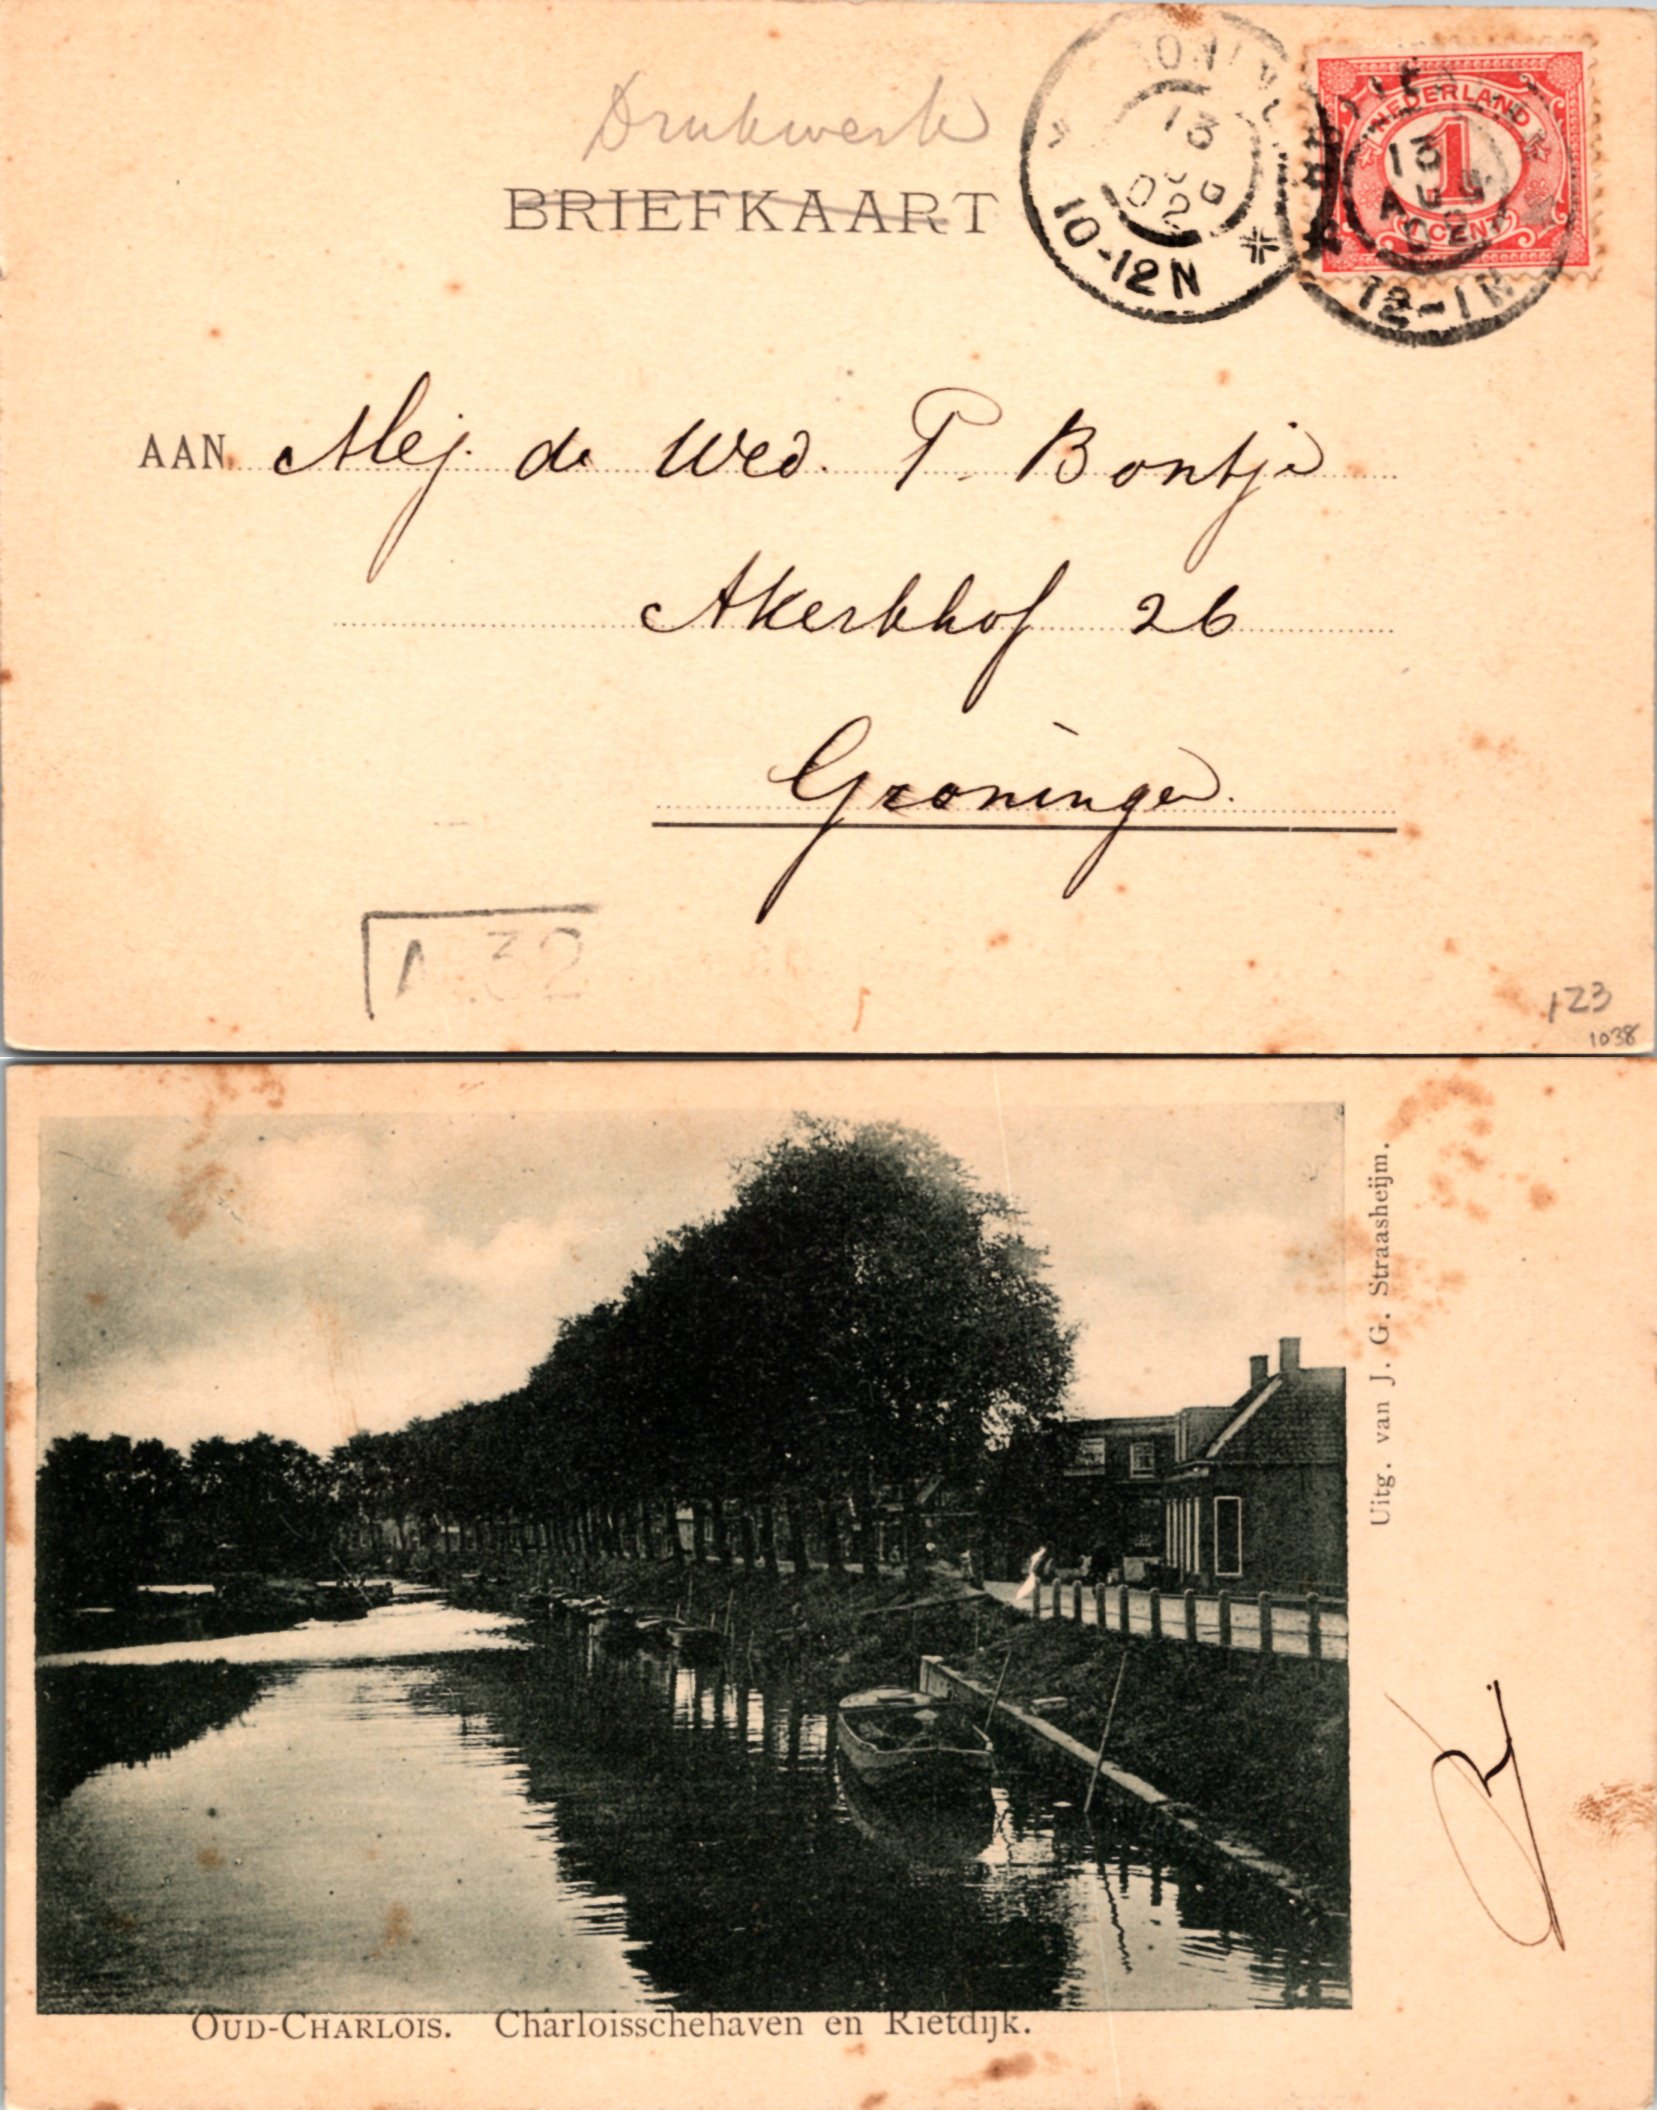 Drukwerk
BRIEFKAART
NEDERLAND
1
1 CENT
13
02
10-12N
13
12-1N
AAN Mej. de Wed. P. Bontje
Akerkhof 26
Groningen.
N 32
123
1038
Uitg. van J. G. Straasheijm.
OUD-CHARLOIS. Charloisschehaven en Rietdijk.